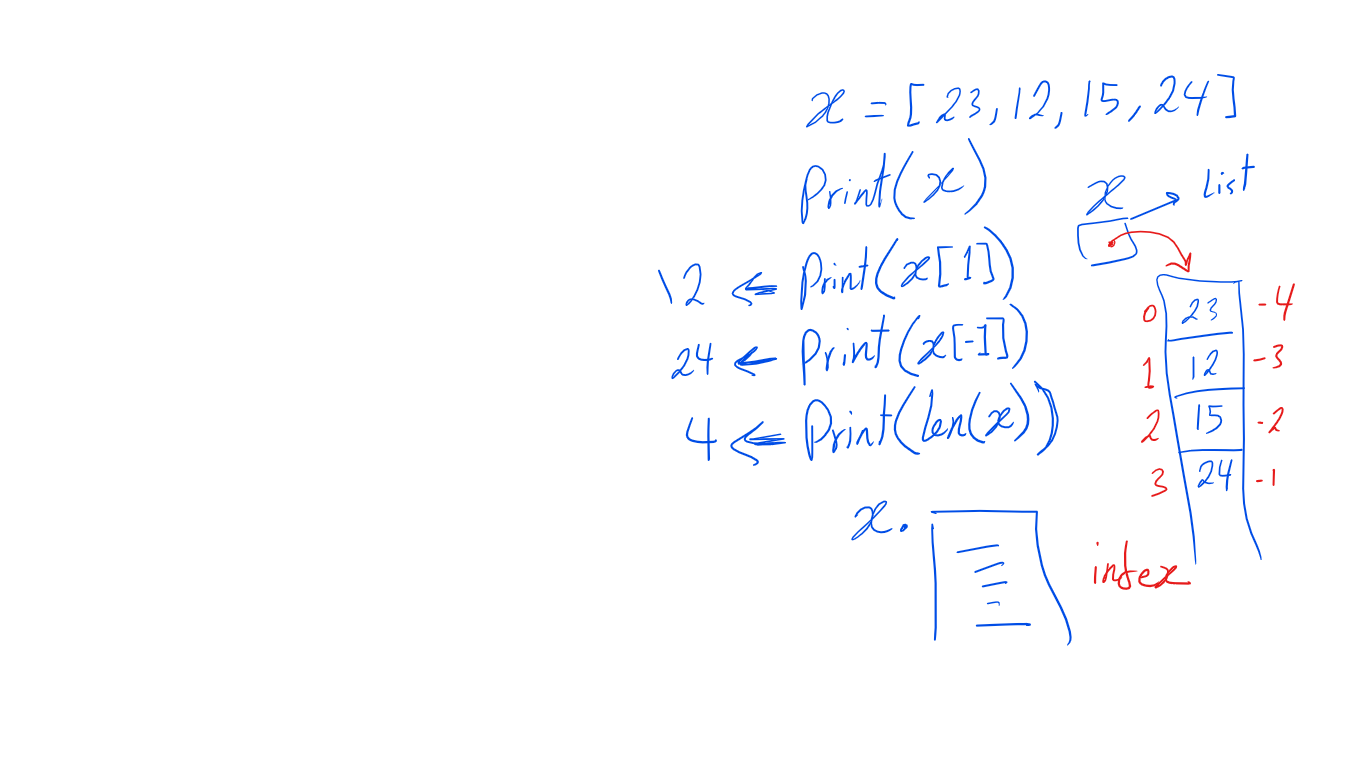 x = [23, 12, 15, 24]
Print(x)
12 ⇐ Print(x[1])
24 ← Print(x[-1])
4 ⇐ Print(len(x))
x.
x → List
0 23 -4
1 12 -3
2 15 -2
3 24 -1
index